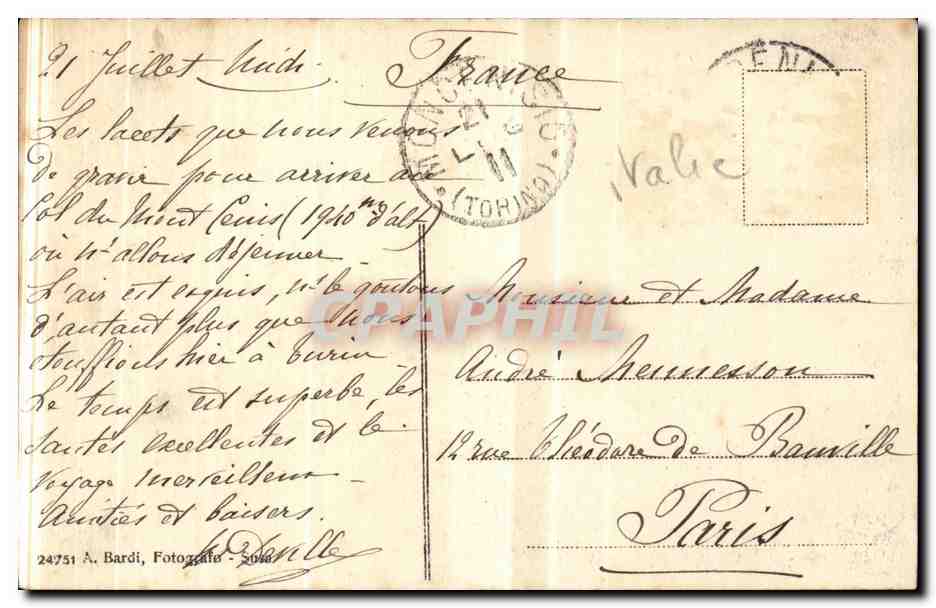 21 Juillet Midi
France
Les lacets que nous venons
de gravir pour arriver au
Col du Mont Cenis (1940 m d'alt)
où ns allons déjeuner _
L'air est exquis, ns le goûtons
d'autant plus que nous
étouffions hier à Turin _
Le temps est superbe, les
santés excellentes et le
voyage merveilleux _
Amitiés et baisers.
24751 A. Bardi, Fotografo - Susa
MONCENISIO
21
11
(TORINO)
CENI
Italie
Monsieur et Madame
André Mennesson
12 rue Théodore de Banville
Paris
CPAPHIL